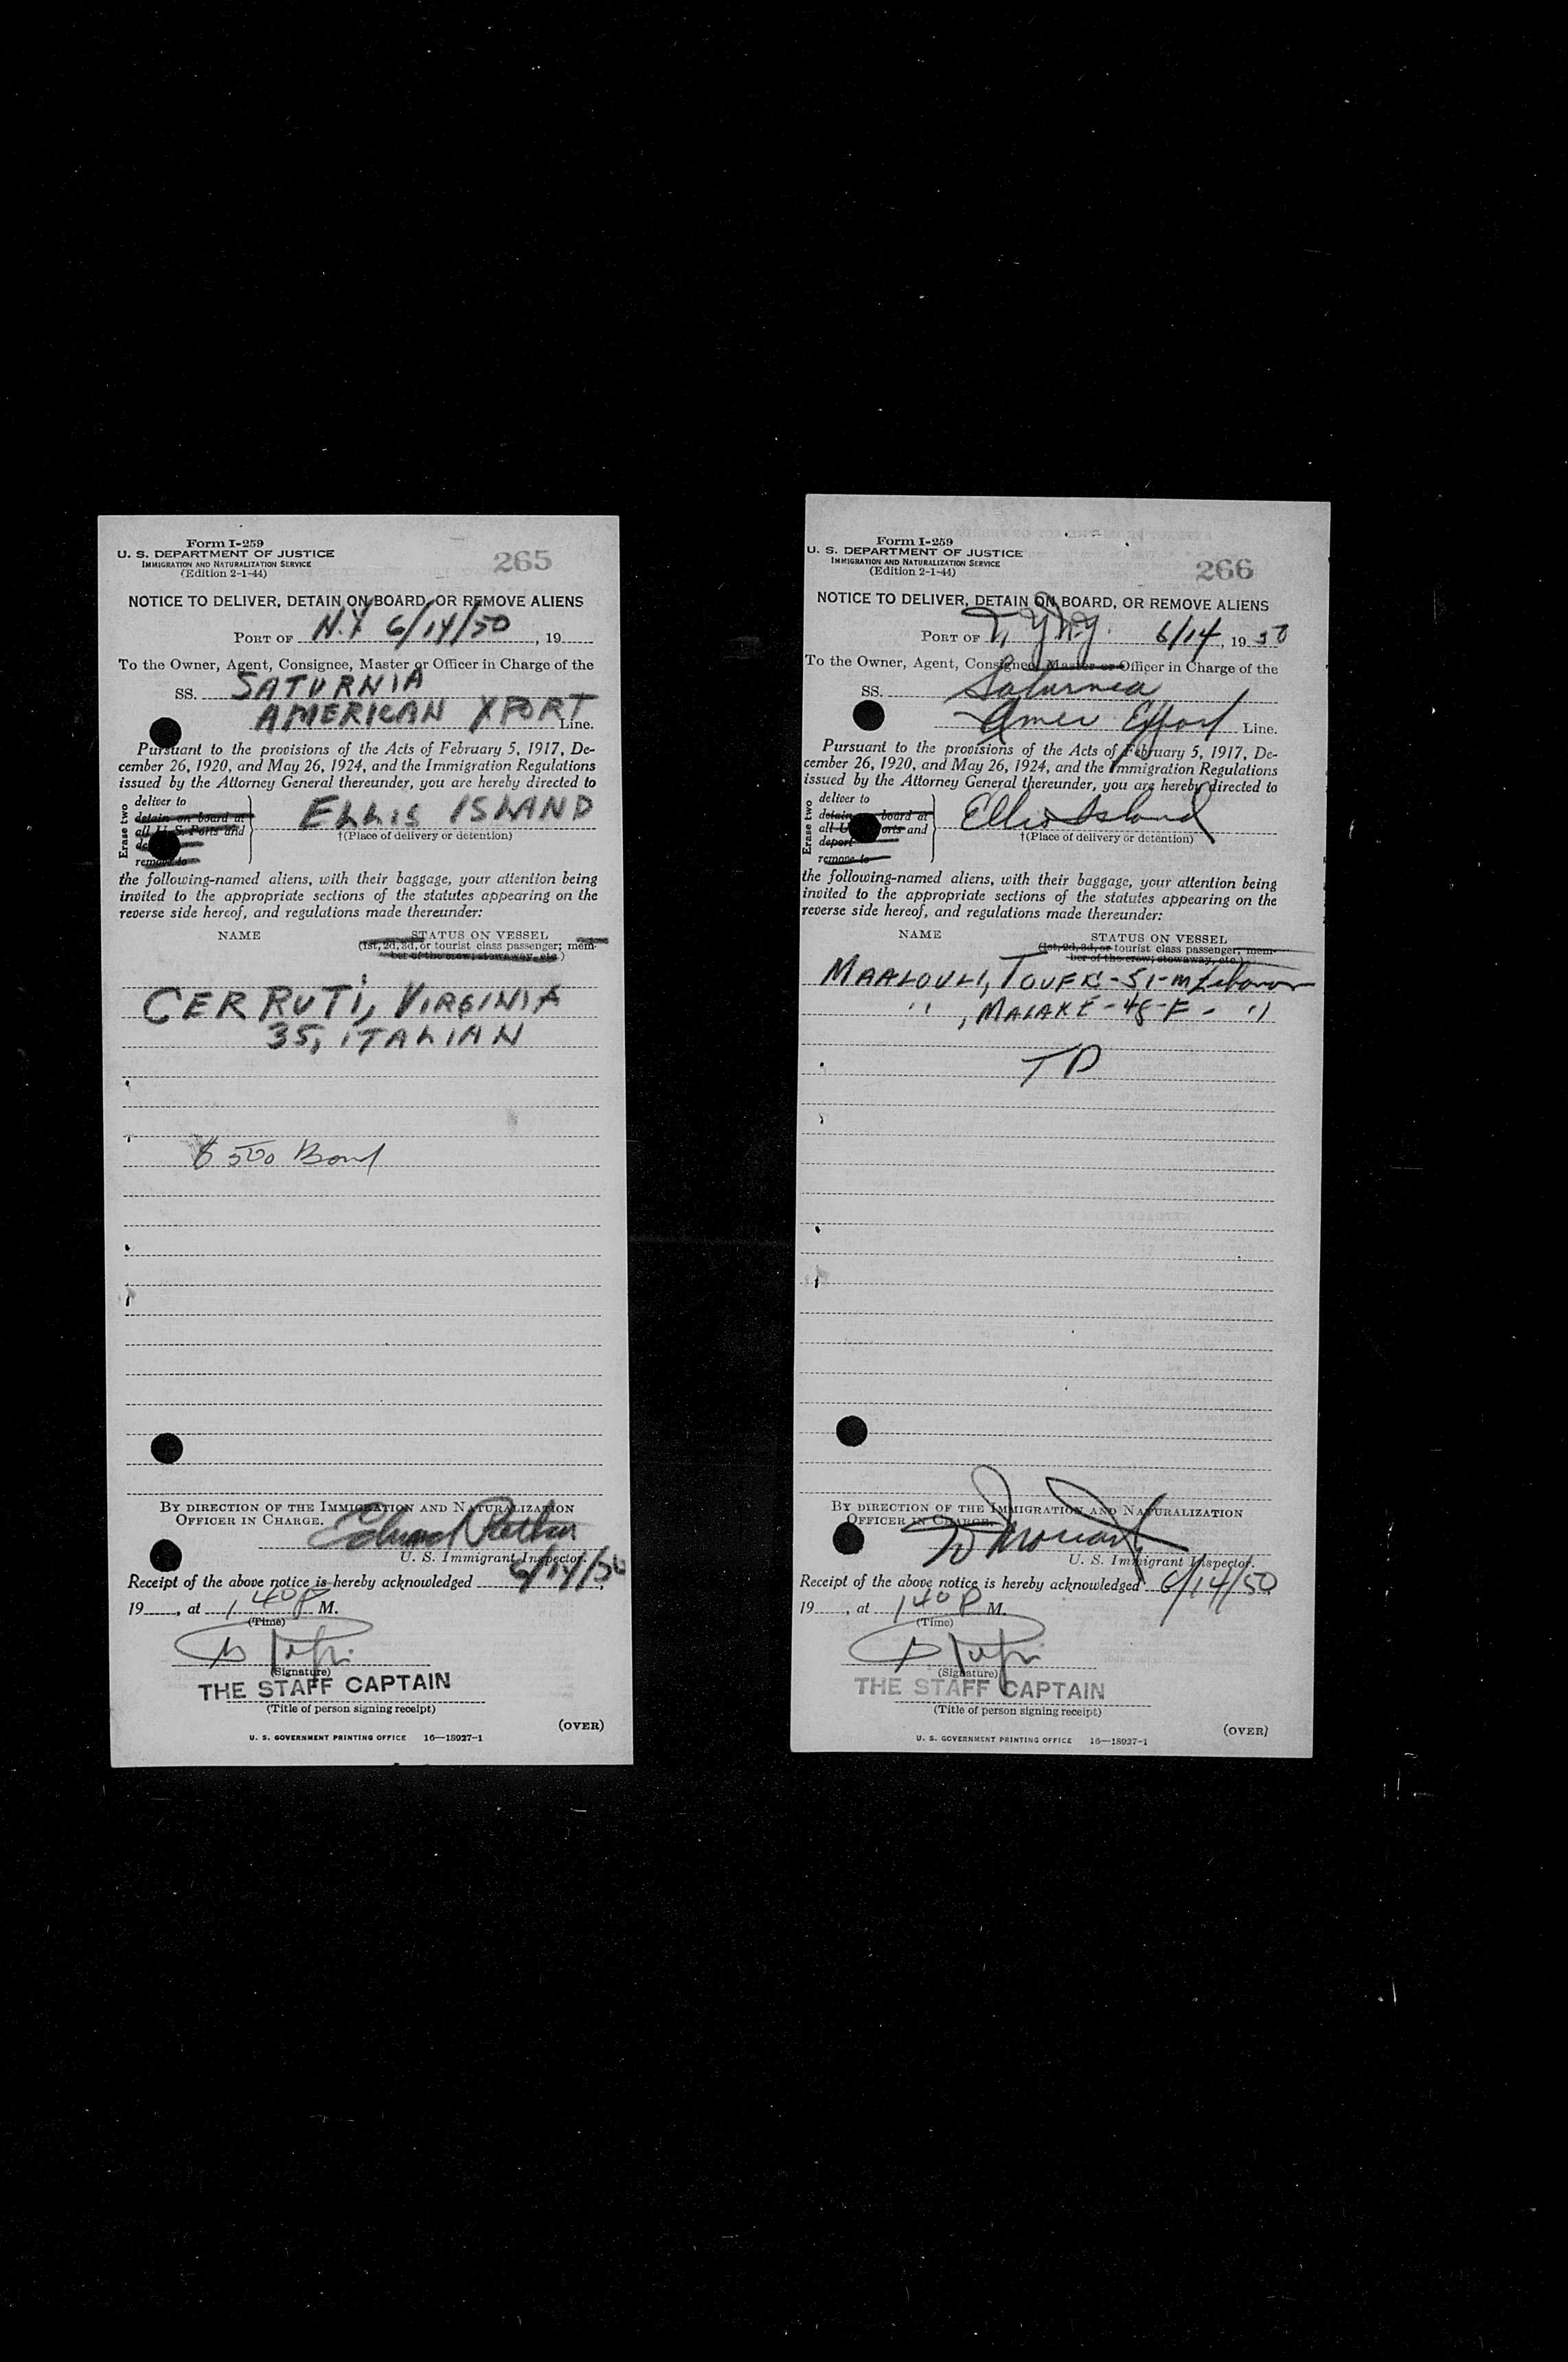 Form I-259
U. S. DEPARTMENT OF JUSTICE
IMMIGRATION AND NATURALIZATION SERVICE
(Edition 2-1-44)
265
NOTICE TO DELIVER, DETAIN ON BOARD, OR REMOVE ALIENS
PORT OF N.Y 6/14/50, 19
To the Owner, Agent, Consignee, Master or Officer in Charge of the
SS. SATURNIA
AMERICAN XPORT Line.
Pursuant to the provisions of the Acts of February 5, 1917, De-
cember 26, 1920, and May 26, 1924, and the Immigration Regulations
issued by the Attorney General thereunder, you are hereby directed to
Erase two
deliver to
detain on board at
all U. S. Ports and
remove to
ELLIS ISLAND
†(Place of delivery or detention)
the following-named aliens, with their baggage, your attention being
invited to the appropriate sections of the statutes appearing on the
reverse side hereof, and regulations made thereunder:
NAME
STATUS ON VESSEL
(1st, 2d, 3d, or tourist class passenger; mem-
ber of the crew; stowaway, etc.)
CERRUTI, VIRGINIA
35, ITALIAN
$500 Bond
BY DIRECTION OF THE IMMIGRATION AND NATURALIZATION
OFFICER IN CHARGE.
Edward
U. S. Immigrant Inspector.
Receipt of the above notice is hereby acknowledged 6/14/50,
19, at 1 40 P M.
(Time)
(Signature)
THE STAFF CAPTAIN
(Title of person signing receipt)
(OVER)
U. S. GOVERNMENT PRINTING OFFICE 16—18927-1
Form I-259
U. S. DEPARTMENT OF JUSTICE
IMMIGRATION AND NATURALIZATION SERVICE
(Edition 2-1-44)
266
NOTICE TO DELIVER, DETAIN ON BOARD, OR REMOVE ALIENS
PORT OF N.Y. 6/14, 19 50
To the Owner, Agent, Consignee, Master or Officer in Charge of the
SS. Saturnia
Amer Export Line.
Pursuant to the provisions of the Acts of February 5, 1917, De-
cember 26, 1920, and May 26, 1924, and the Immigration Regulations
issued by the Attorney General thereunder, you are hereby directed to
Erase two
deliver to
detain board at
all U orts and
deport
remove to
Ellis Island
†(Place of delivery or detention)
the following-named aliens, with their baggage, your attention being
invited to the appropriate sections of the statutes appearing on the
reverse side hereof, and regulations made thereunder:
NAME
STATUS ON VESSEL
(1st, 2d, 3d, or tourist class passenger; mem-
ber of the crew; stowaway, etc.)
MAALOULI, TOUFIC-51-m Lebanon
" , MALAKE-48-F- "
TD
BY DIRECTION OF THE IMMIGRATION AND NATURALIZATION
OFFICER IN CHARGE.
U. S. Immigrant Inspector.
Receipt of the above notice is hereby acknowledged 6/14/50
19, at 1 40 P M.
(Time)
(Signature)
THE STAFF CAPTAIN
(Title of person signing receipt)
(OVER)
U. S. GOVERNMENT PRINTING OFFICE 16—18927-1